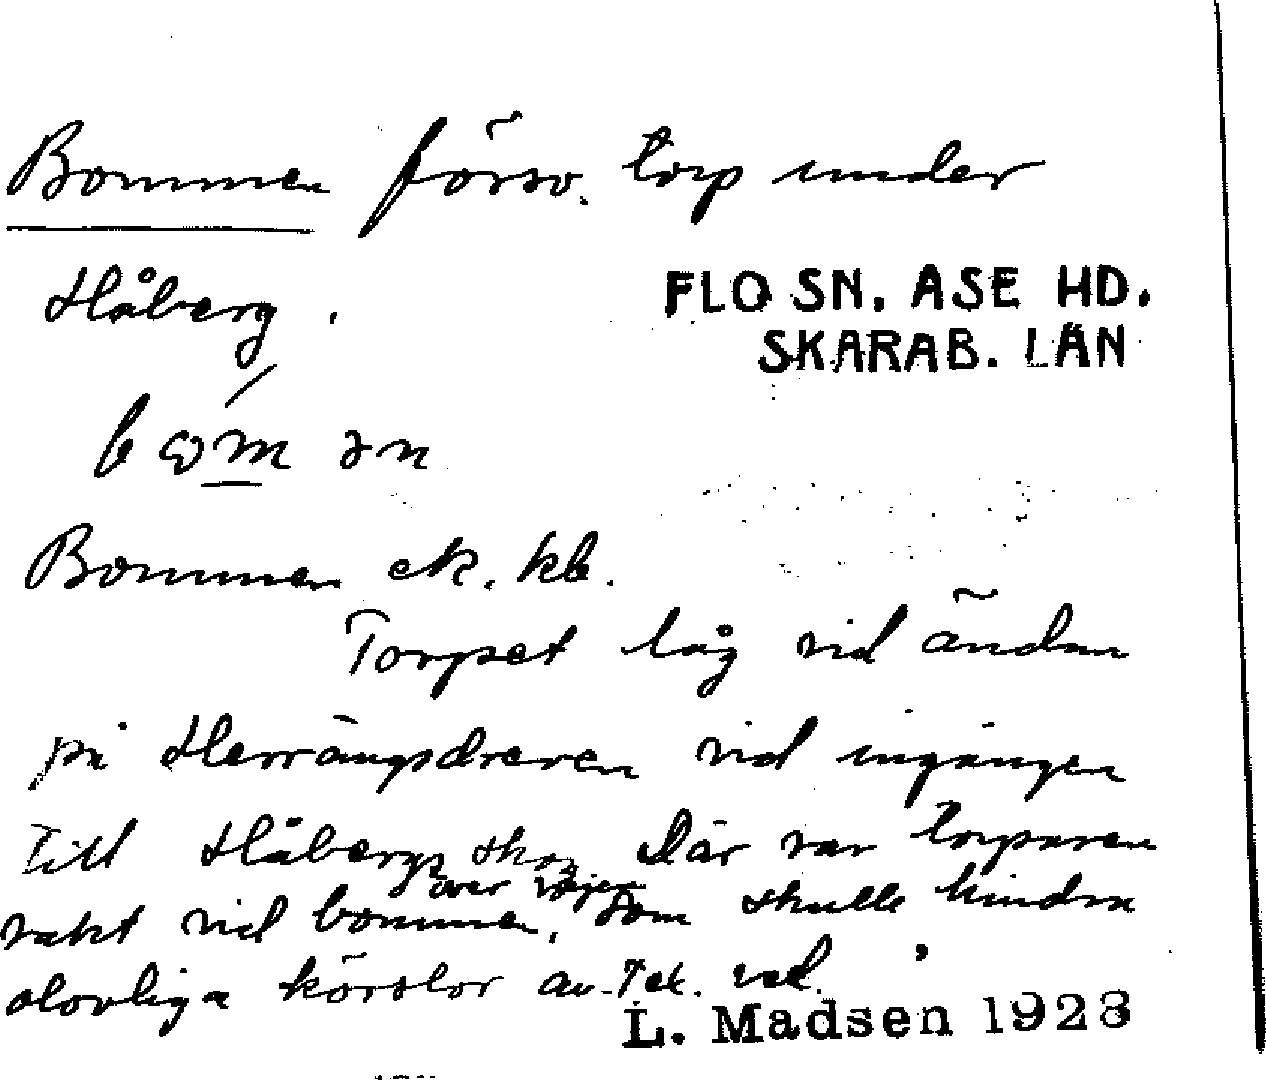 Bommen försv. torp under
Håberg.
FLO SN. ASE HD.
SKARAB. LÄN
Bommen ek. kb.
Torpet låg vid ändan
på Herrängsdreven vid ingången
till Håbergs skog Där var torparen
över vägen
vakt vid bommen, som skulle hindra
olovliga körslor av t ex. ved.
L. Madsen 1923